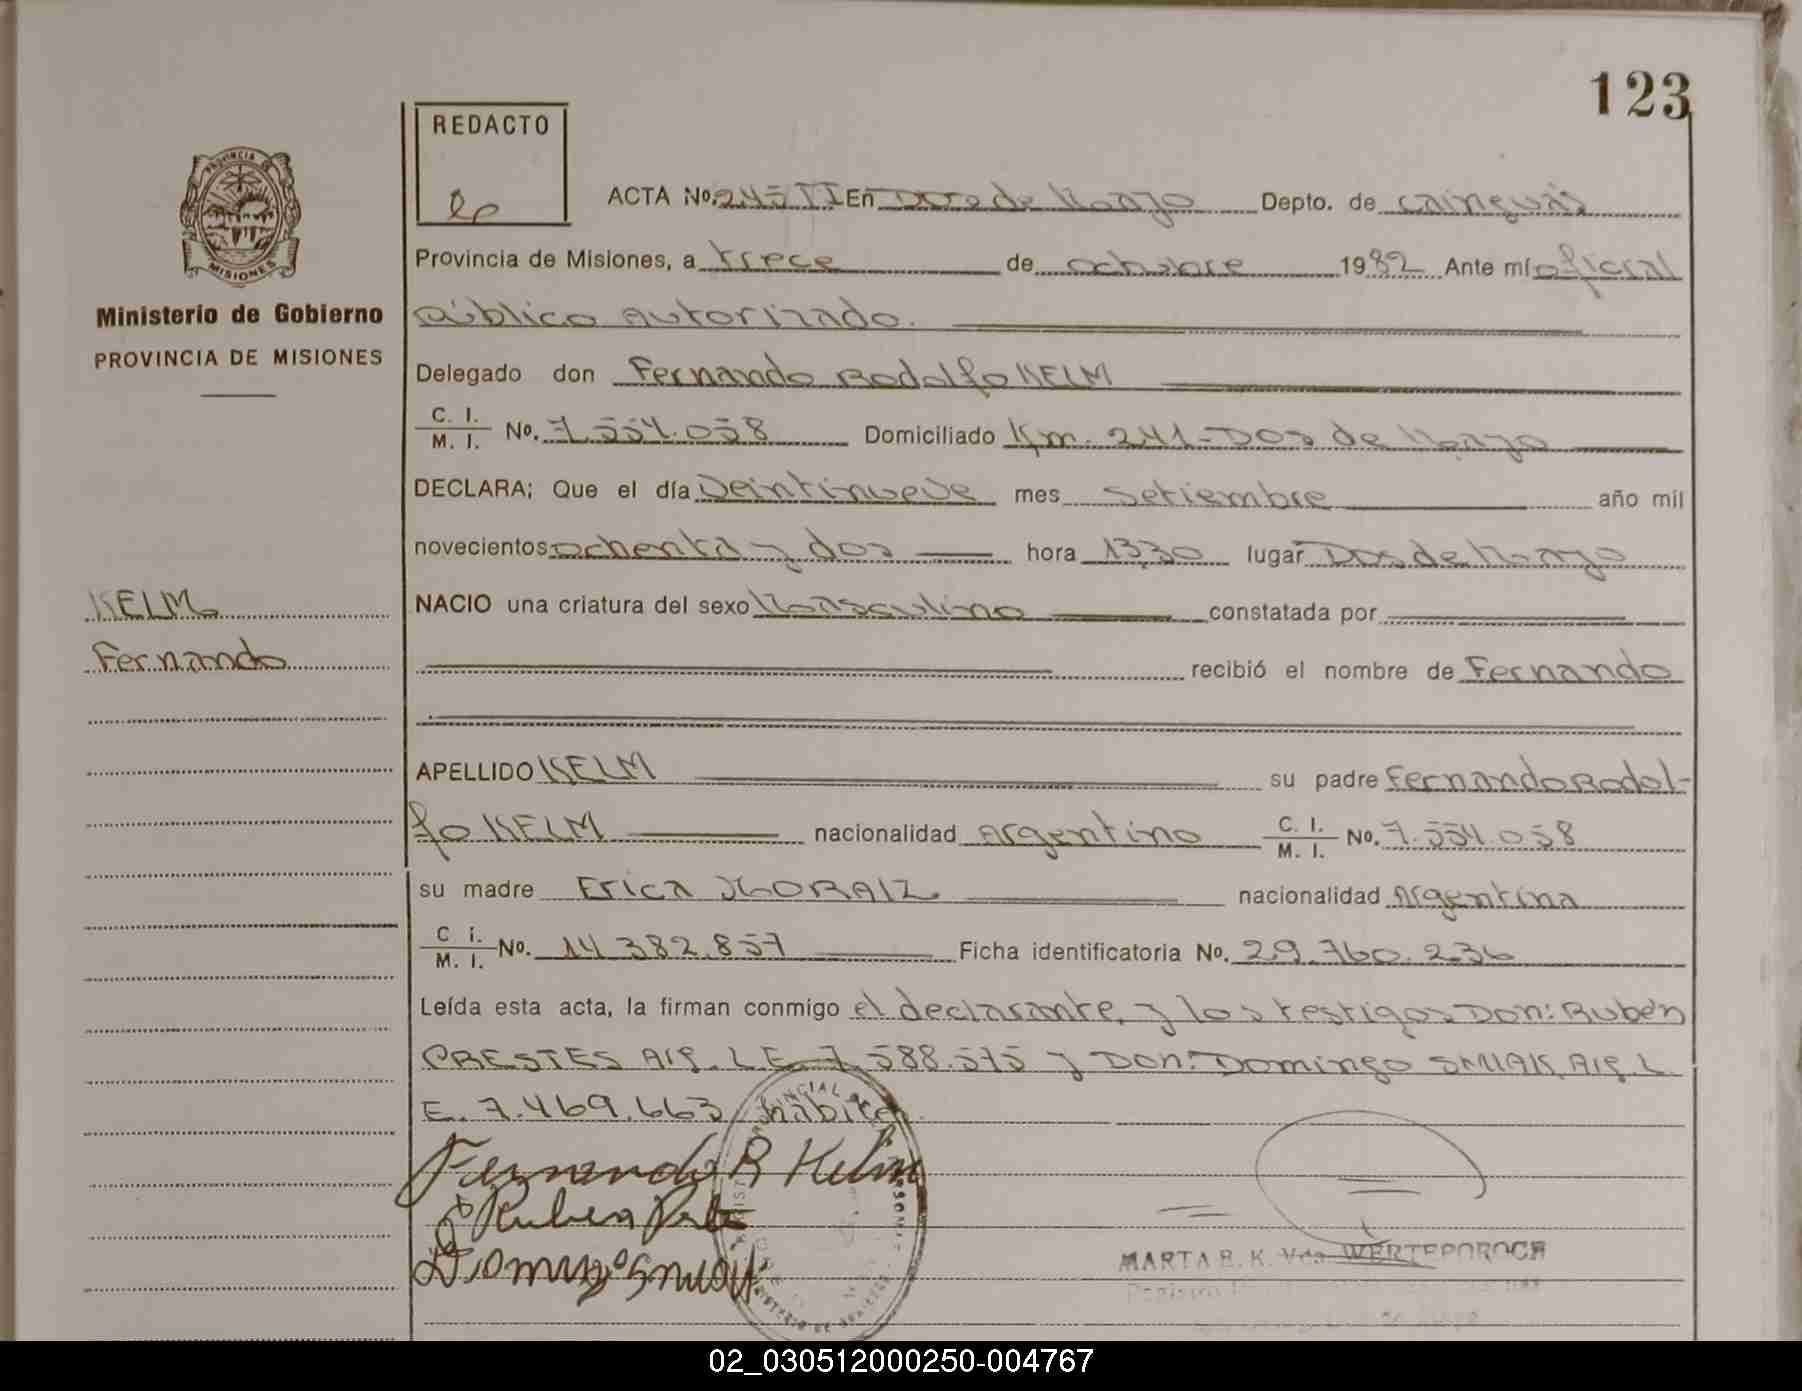 123
REDACTO
ACTA No. 245 TI En Dos de Mayo Depto. de Cainguás
PROVINCIA
MISIONES
Provincia de Misiones, a trece de octubre 1982 Ante mí oficial
Ministerio de Gobierno
PROVINCIA DE MISIONES
público autorizado.
Delegado don Fernando Rodolfo KELM
C. I.
M. I. No. 7.554.058 Domiciliado Km. 241 - Dos de Mayo
DECLARA; Que el día Veintinueve mes Setiembre año mil
novecientos ochenta y dos hora 13,30 lugar Dos de Mayo
KELM
NACIO una criatura del sexo Masculino constatada por
Fernando
recibió el nombre de Fernando
APELLIDO KELM su padre Fernando Rodol-
fo KELM nacionalidad Argentino C. I. M. I. No. 7.554.058
su madre Erica MORAIZ nacionalidad Argentina
C i.
M. I. No. 14.382.857 Ficha identificatoria No. 29.760.236
Leída esta acta, la firman conmigo el declarante, y los testigos Don: Rubén
PRESTES Arg. L.E. 7.588.575 y Don: Domingo SMIAK Arg. L.
E. 7.469.663 hábiles.
Fernando R Kelm
Ruben
Domingo
MARTA B. K. Vda. WERTEPOROCH
02_030512000250-004767